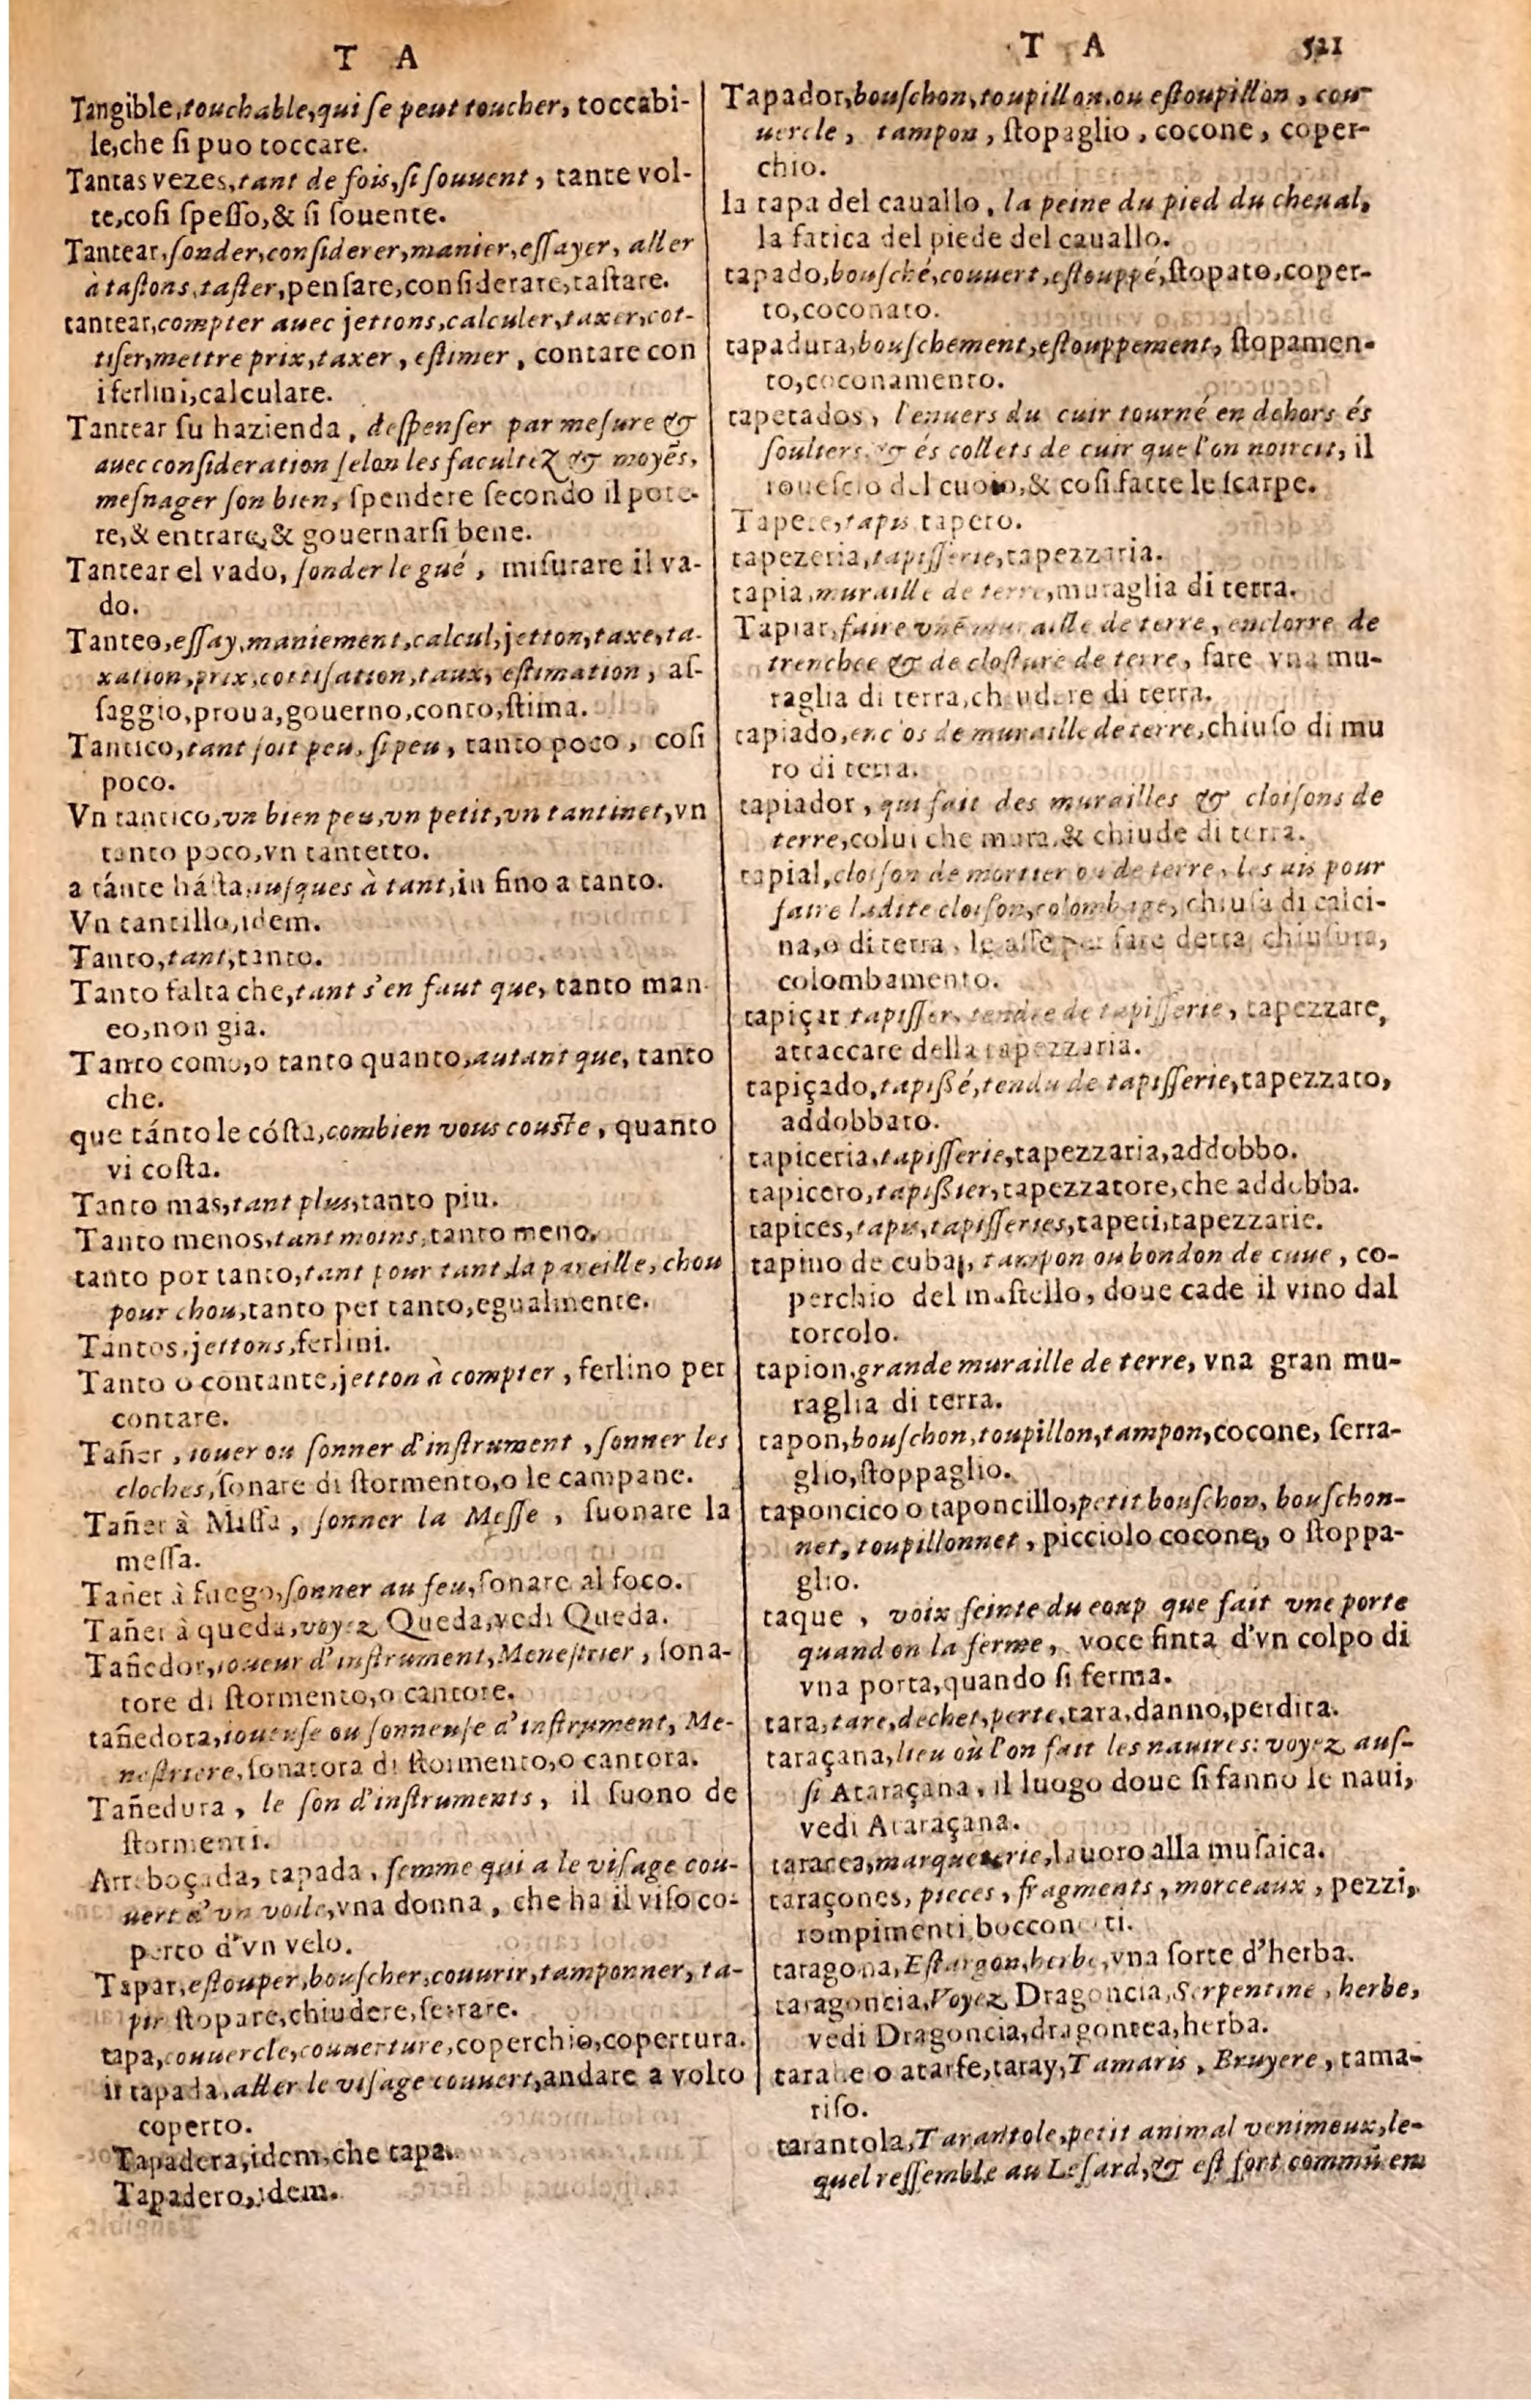 T A
Tangible, touchable, qui se peut toucher, toccabi-
le, che si puo toccare.
Tantas vezes, tant de fois, si souuent, tante vol-
te, cosi spesso, & si souente.
Tantear, sonder, considerer, manier, essayer, aller
à tastons, taster, pensare, considerare, tastare.
tantear, compter auec jettons, calculer, taxer, cot-
tiser, mettre prix, taxer, estimer, contare con
i ferlini, calculare.
Tantear su hazienda, despenser par mesure &
auec consideration selon les facultez & moyẽs,
mesnager son bien, spendere secondo il pote-
re, & entrare, & gouernarsi bene.
Tantear el vado, sonder le gué, misurare il va-
do.
Tanteo, essay, maniement, calcul, jetton, taxe, ta-
xation, prix, cottisation, taux, estimation, as-
saggio, proua, gouerno, conto, stima.
Tantico, tant soit peu, si peu, tanto poco, cosi
poco.
Vn tantico, vn bien peu, vn petit, vn tantinet, vn
tanto poco, vn tantetto.
a tánte hásta, iusques à tant, in fino a tanto.
Vn tantillo, idem.
Tanto, tant, tanto.
Tanto falta che, tant s'en faut que, tanto man
eo, non gia.
Tanto como, o tanto quanto, autant que, tanto
che.
que tánto le cósta, combien vous couste, quanto
vi costa.
Tanto mas, tant plus, tanto piu.
Tanto menos, tant moins, tanto meno.
tanto por tanto, tant pour tant, la pareille, chou
pour chou, tanto per tanto, egualmente.
Tantos, jettons, ferlini.
Tanto o contante, jetton à compter, ferlino per
contare.
Tañer, iouer ou sonner d'instrument, sonner les
cloches, sonare di stormento, o le campane.
Tañer à Missa, sonner la Messe, suonare la
messa.
Tañer à fuego, sonner au feu, sonare al foco.
Tañer à queda, voyez Queda, vedi Queda.
Tañedor, ioueur d'instrument, Menestrier, sona-
tore di stormento, o cantore.
tañedora, ioueuse ou sonneuse d'instrument, Me-
nestriere, sonatora di stormento, o cantora.
Tañedura, le son d'instruments, il suono de
stormenti.
Arreboçada, tapada, femme qui a le visage cou-
uert d'vn voile, vna donna, che ha il viso co-
perto d'vn velo.
Tapar, estouper, bouscher, couurir, tamponner, ta-
pir stopare, chiudere, serrare.
tapa, couuercle, couuerture, coperchio, copertura.
ir tapada, aller le visage couuert, andare a volto
coperto.
Tapadera, idem, che tapa.
Tapadero, idem.
T A 521
Tapador, bouschon, toupillon, ou estoupillon, cou-
uercle, tampon, stopaglio, cocone, coper-
chio.
la tapa del cauallo, la peine du pied du cheual,
la fatica del piede del cauallo.
tapado, bousché, couuert, estouppé, stopato, coper-
to, coconato.
tapadura, bouschement, estouppement, stopamen-
to, coconamento.
tapetados, l'enuers du cuir tourné en dehors és
souliers, & és collets de cuir que l'on noircit, il
rouescio del cuoio, & cosi fatte le scarpe.
Tapete, tapis tapeto.
tapezeria, tapisserie, tapezzaria.
tapia, muraille de terre, muraglia di terra.
Tapiar, faire vne muraille de terre, enclorre de
trenchee & de closture de terre, fare vna mu-
raglia di terra, chiudere di terra.
tapiado, enclos de muraille de terre, chiuso di mu
ro di terra.
tapiador, qui fait des murailles & cloisons de
terre, colui che mura, & chiude di terra.
tapial, cloison de mortier ou de terre, les ais pour
faire ladite cloison, colombage, chiusa di calci-
na, o di terra, le asse per fare detta chiusura,
colombamento.
tapiçar tapisser, tendre de tapisserie, tapezzare,
attaccare della tapezzaria.
tapiçado, tapissé, tendu de tapisserie, tapezzato,
addobbato.
tapiceria, tapisserie, tapezzaria, addobbo.
tapicero, tapissier, tapezzatore, che addobba.
tapices, tapis, tapisseries, tapeti, tapezzarie.
tapino de cuba, tampon ou bondon de cuue, co-
perchio del mastello, doue cade il vino dal
torcolo.
tapion, grande muraille de terre, vna gran mu-
raglia di terra.
tapon, bouschon, toupillon, tampon, cocone, serra-
glio, stoppaglio.
taponcico o taponcillo, petit bouschon, bouschon-
net, toupillonnet, picciolo cocone, o stoppa-
glio.
taque, voix feinte du coup que fait vne porte
quand on la ferme, voce finta d'vn colpo di
vna porta, quando si ferma.
tara, tare, dechet, perte, tara, danno, perdita.
taraçana, lieu où l'on fait les nauires: voyez aus-
si Ataraçana, il luogo doue si fanno le naui,
vedi Ataraçana.
taracea, marqueterie, lauoro alla musaica.
taraçones, pieces, fragments, morceaux, pezzi,
rompimenti bocconcitti.
taragona, Estargon, herbe, vna sorte d'herba.
taragoncia, Voyez Dragoncia, Serpentine, herbe,
vedi Dragoncia, dragontea, herba.
tarahe o atarfe, taray, Tamaris, Bruyere, tama-
riso.
tarantola, Tarantole, petit animal venimeux, le-
quel ressemble au Lesard, & est fort commũ en